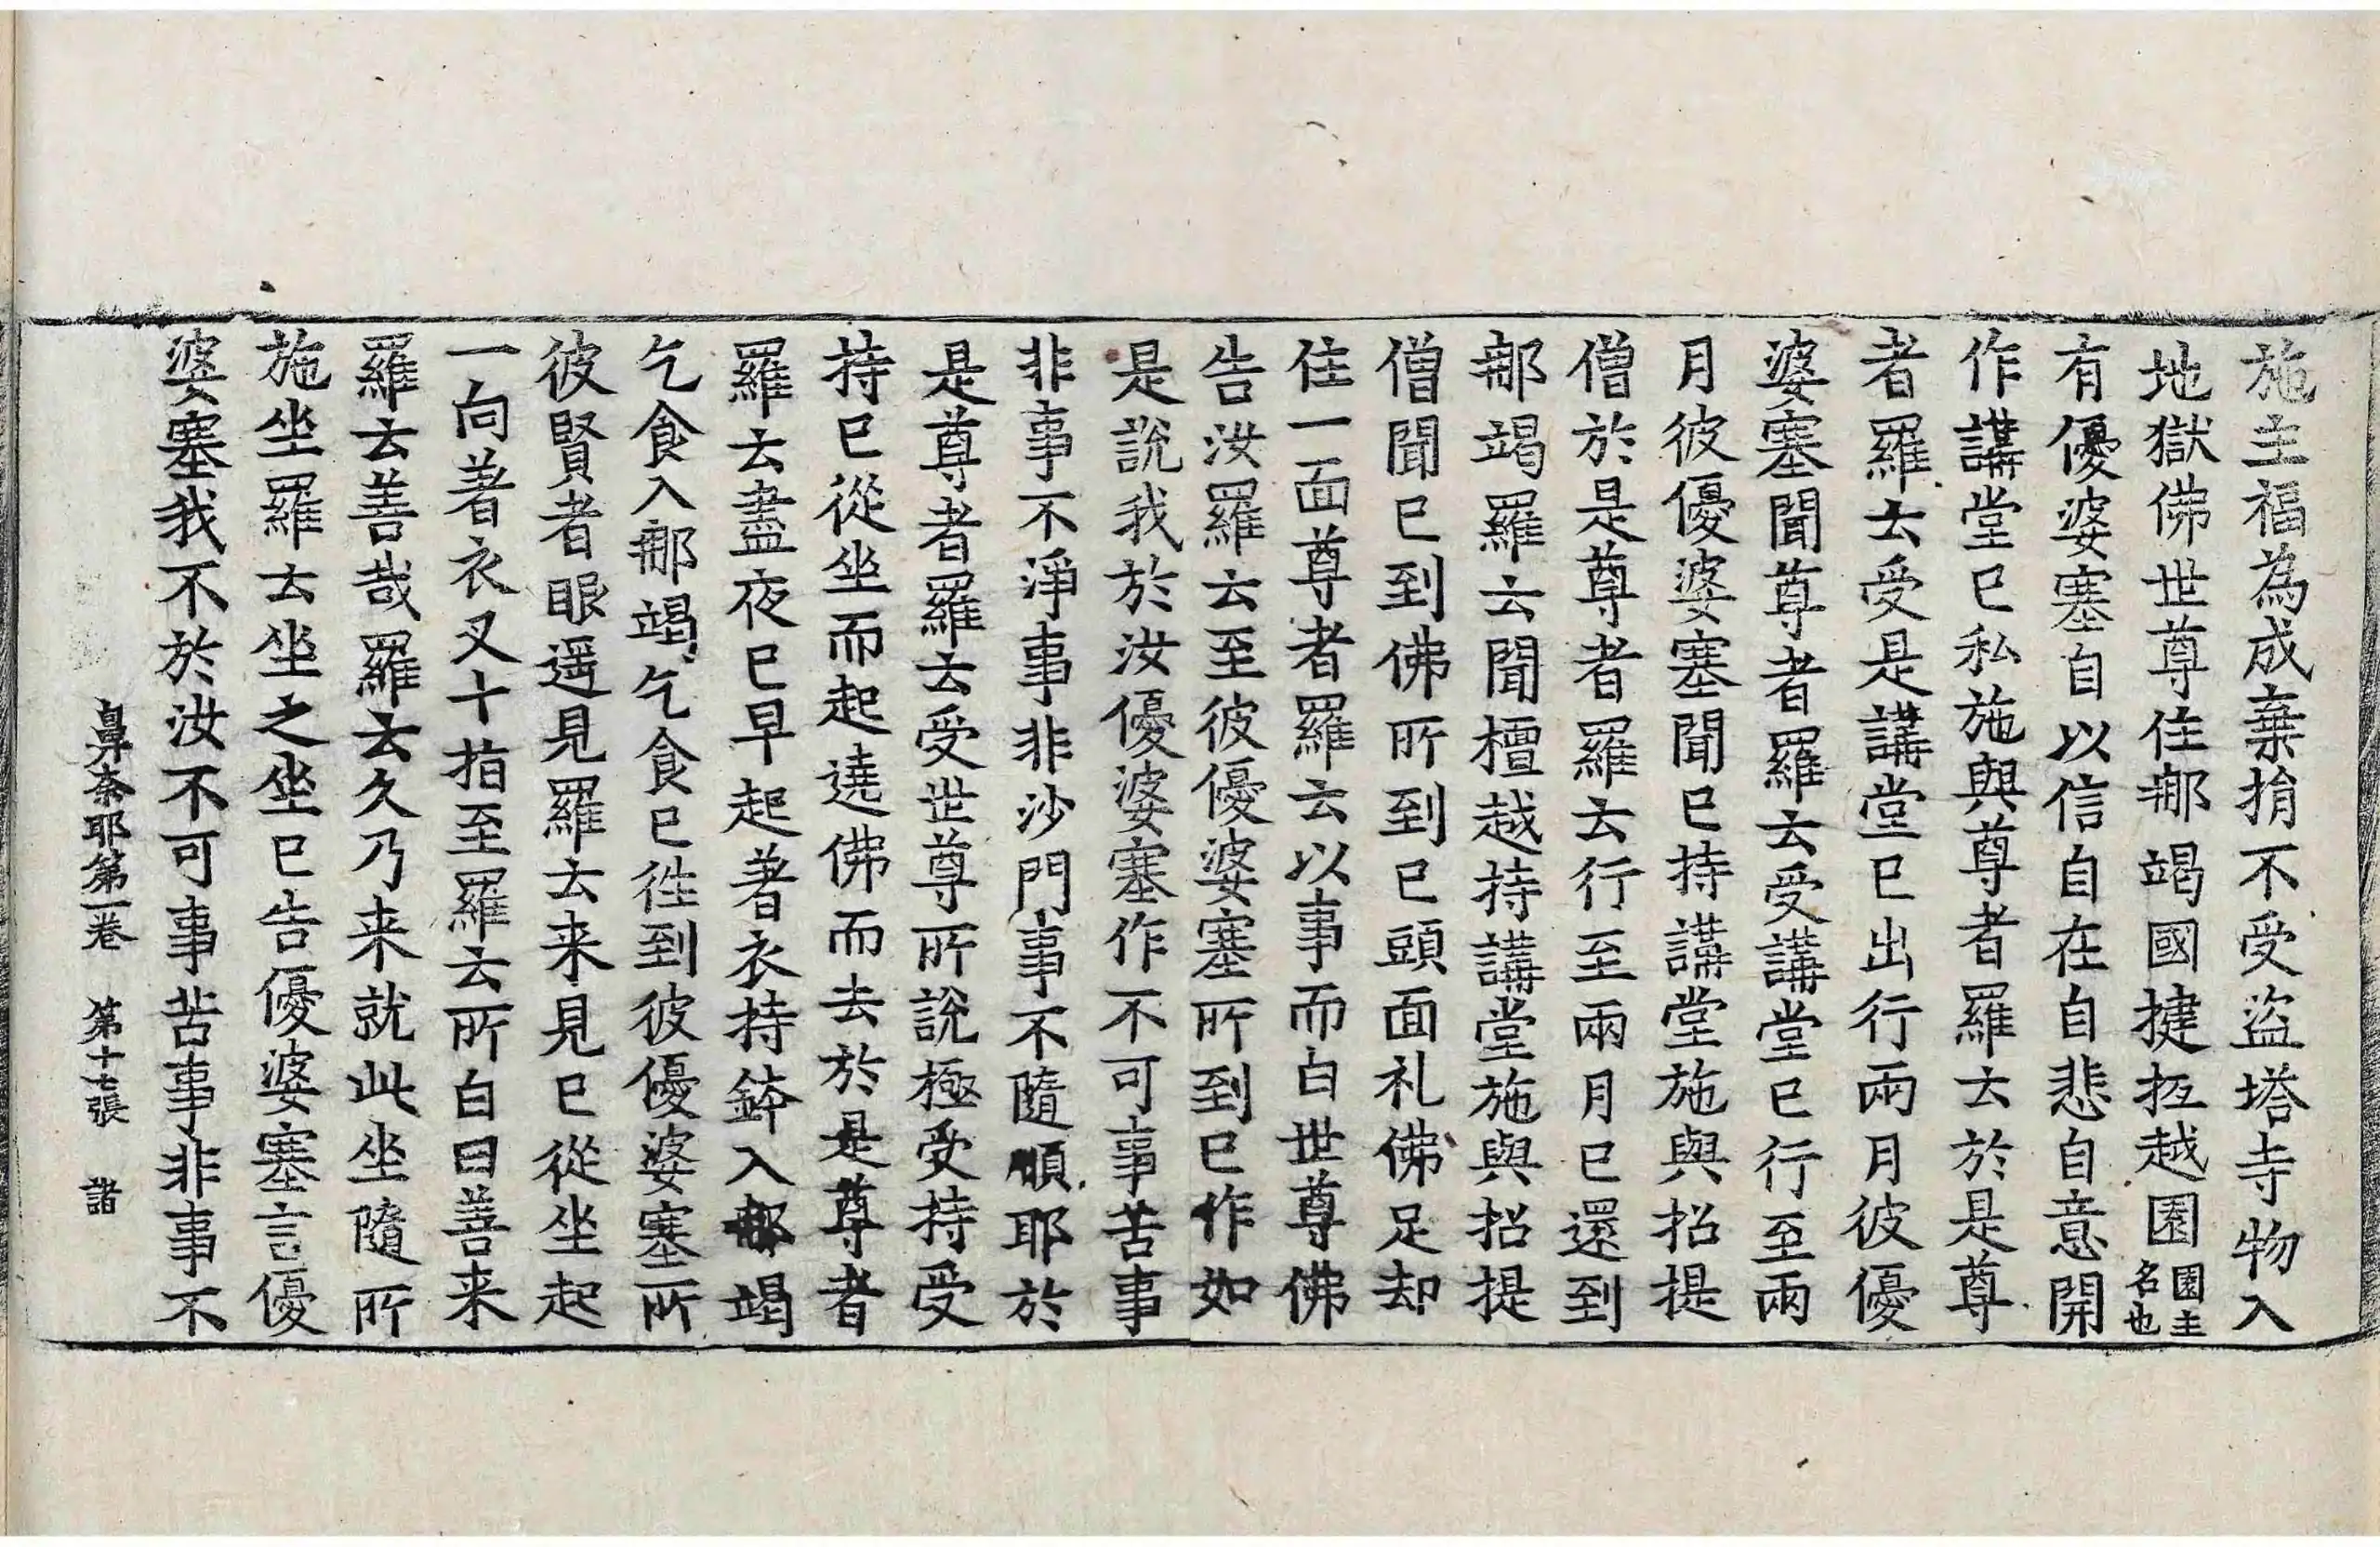 施主福為成棄捐不受盜塔寺物入
地獄佛世尊住那竭國揵抂越園園主名也
有優婆塞自以信自在自悲自意開
作講堂已私施與尊者羅云於是尊
者羅云受是講堂已出行兩月彼優
婆塞聞尊者羅云受講堂已行至兩
月彼優婆塞聞已持講堂施與招提
僧於是尊者羅云行至兩月已還到
那竭羅云聞檀越持講堂施與招提
僧聞已到佛所到已頭面礼佛足却
住一面尊者羅云以事而白世尊佛
告汝羅云至彼優婆塞所到已作如
是說我於汝優婆塞作不可事苦事
非事不淨事非沙門事不隨順耶於
是尊者羅云受世尊所說極受持受
持已從坐而起遶佛而去於是尊者
羅云盡夜已早起著衣持鉢入那竭
乞食入那竭乞食已徃到彼優婆塞所
彼賢者眼遥見羅云来見已從坐起
一向著衣叉十指至羅云所白曰善来
羅云善哉羅云久乃来就此坐隨所
施坐羅云坐之坐已告優婆塞言優
婆塞我不於汝不可事苦事非事不
鼻奈耶第一卷 第十七張 諸